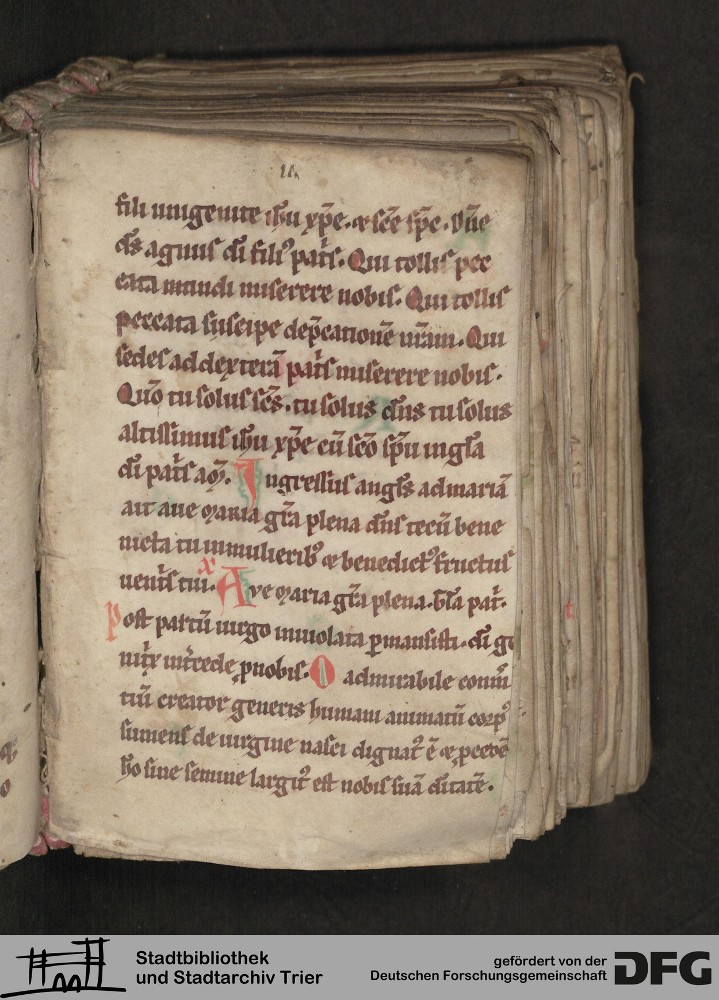 fili unigenite ihu xp̄e. ⁊ sc̄e sp̄c. Dn̄e
ds agnus di fili' pat̄s. Qui tollis pec
cata mundi miserere nobis. Qui tollis
peccata suscipe dep̄catione̅ nr̄am. Qui
sedes ad dextera̅ pat̄s miserere nobis.
Quō tu solus sc̄s. tu solus dn̄s tu solus
altissimus ihu xp̄e cū sc̄o sp̄u in gl̄a
di pat̄s am̄. Ingressus angl̄s ad maria̅
ait aue maria gr̄a plena dn̄s tecū bene
dicta tu in mulierib' ⁊ benedict' fructus
uent̄s tui. Aue maria gr̄a plena. Gl̄a pat̄.
Post partū uirgo inuiolata ꝑmansisti. di ge
nit̄x int̄cede ꝓ nobis. O admirabile com̄m
tiū creator generis humani animatū corp'
sumens de uirgine nasci dignat' ē ⁊ ꝓcedē
ho sine semine largit' est nobis suā ditatē.
Stadtbibliothek
und Stadtarchiv Trier
gefördert von der
Deutschen Forschungsgemeinschaft
DFG